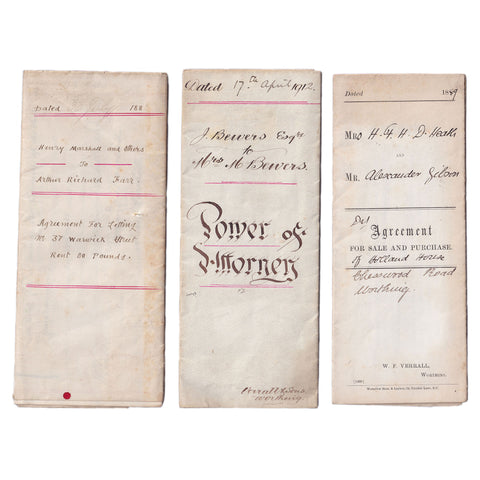 Dated July 188
Henry Marshall and others
To
Arthur Richard Farr.
Agreement For Letting
No 37 Warwick Street
Rent 80 Pounds.
Dated 17th April 1912.
J. Bewers Esqre
to
Mrs M Bewers.
Power of
Attorney
Verrall & Sons
Worthing.
Dated 1889
Mrs H. F. H. D. Heake
AND
Mr. Alexander
Agreement
FOR SALE AND PURCHASE
of Holland House
Chesswood Road
Worthing.
W. F. VERRALL,
WORTHING.